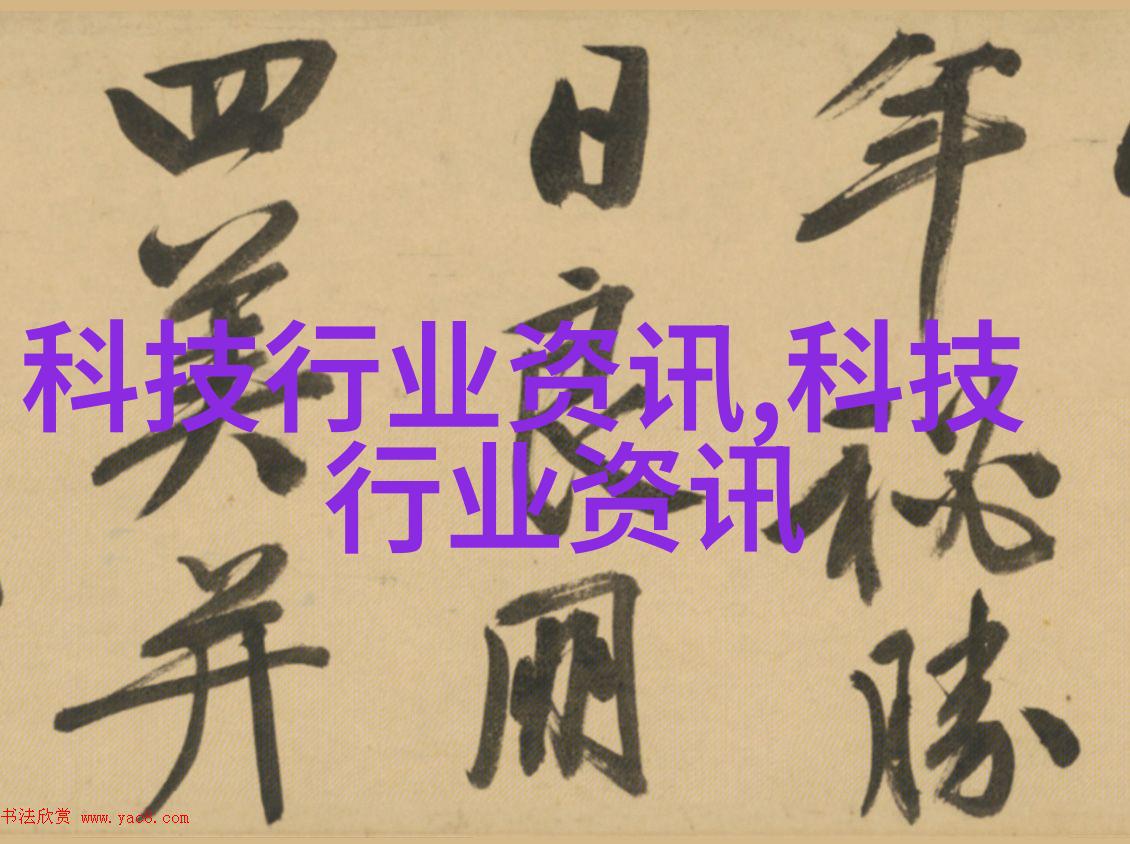 年秘勝
日良用
四美并
科技行业资讯,科技
行业资讯
书法欣赏 www.yac8.com